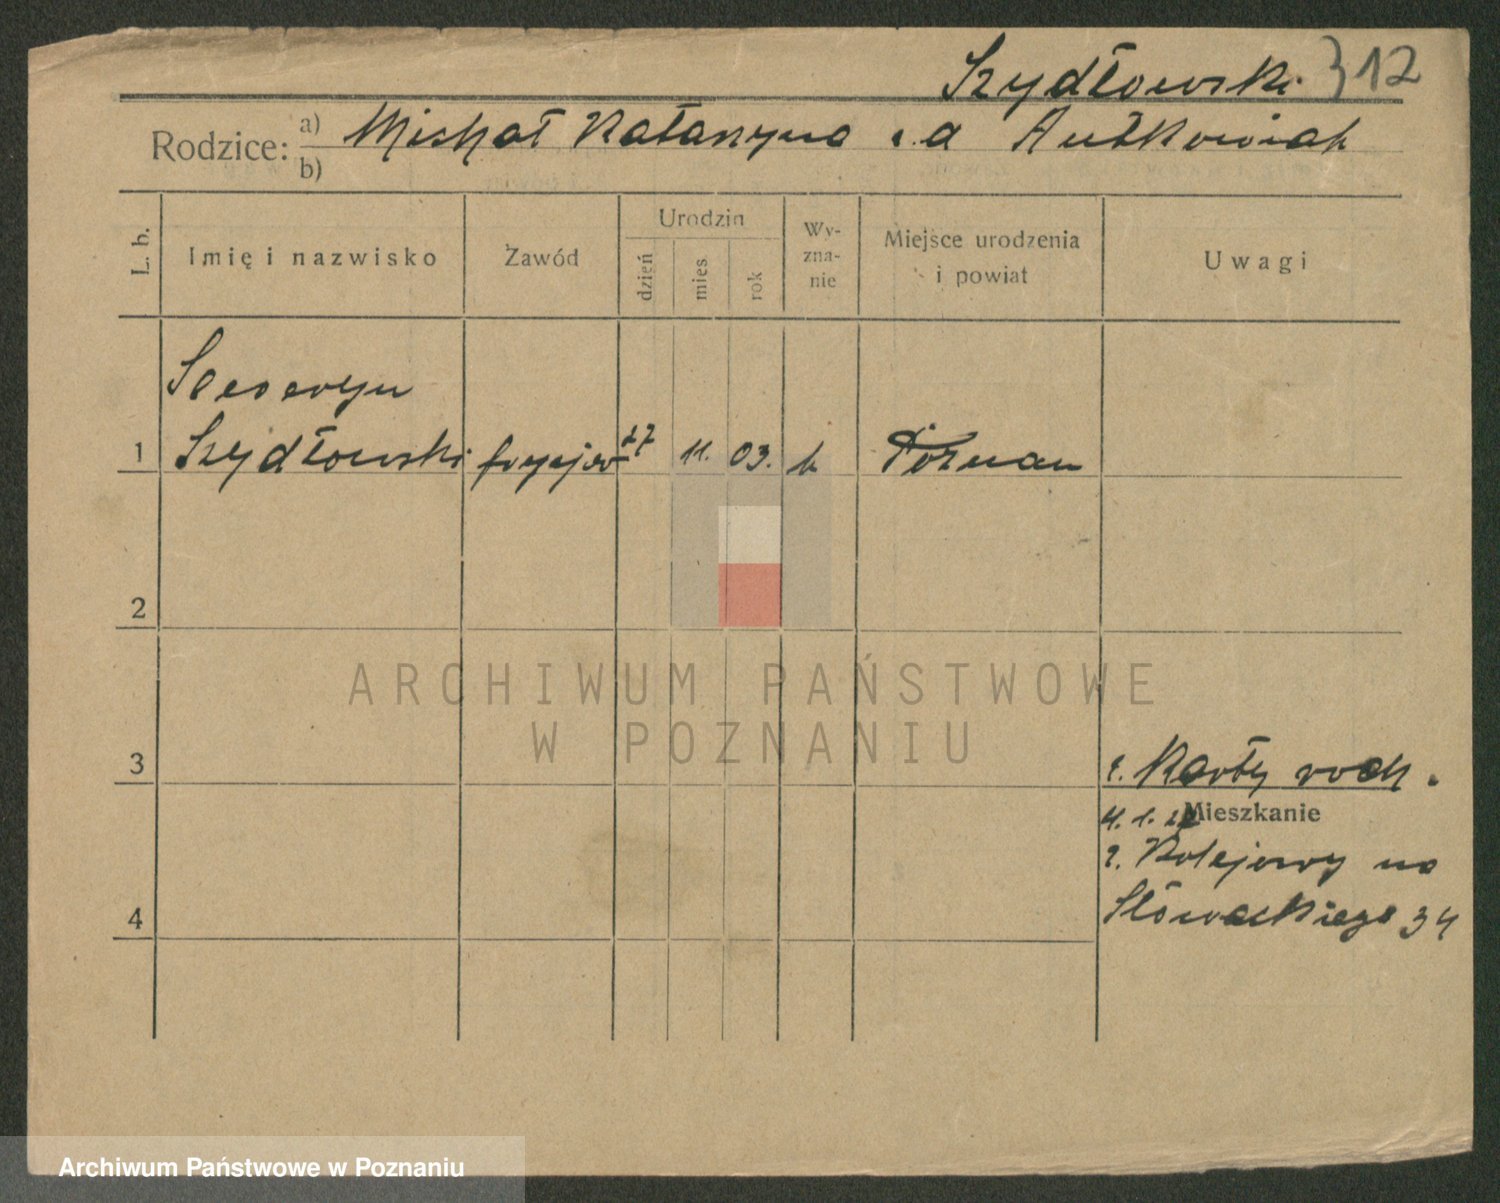 Szydłowski 312
Rodzice: a) Michał Katarzyna z d Antkowiak
b)
L. b.
Imię i nazwisko
Zawód
Urodzin
dzień
mies.
rok
Wy-
zna-
nie
Miejsce urodzenia
i powiat
Uwagi
Seweryn
1 Szydłowski fryzjer 27 11. 03. k Poznan
2
3
z. Karty rodz.
Mieszkanie
4. 1.
z. Kolejowy na
Słowackiego 34
4
ARCHIWUM PAŃSTWOWE
W POZNANIU
Archiwum Państwowe w Poznaniu